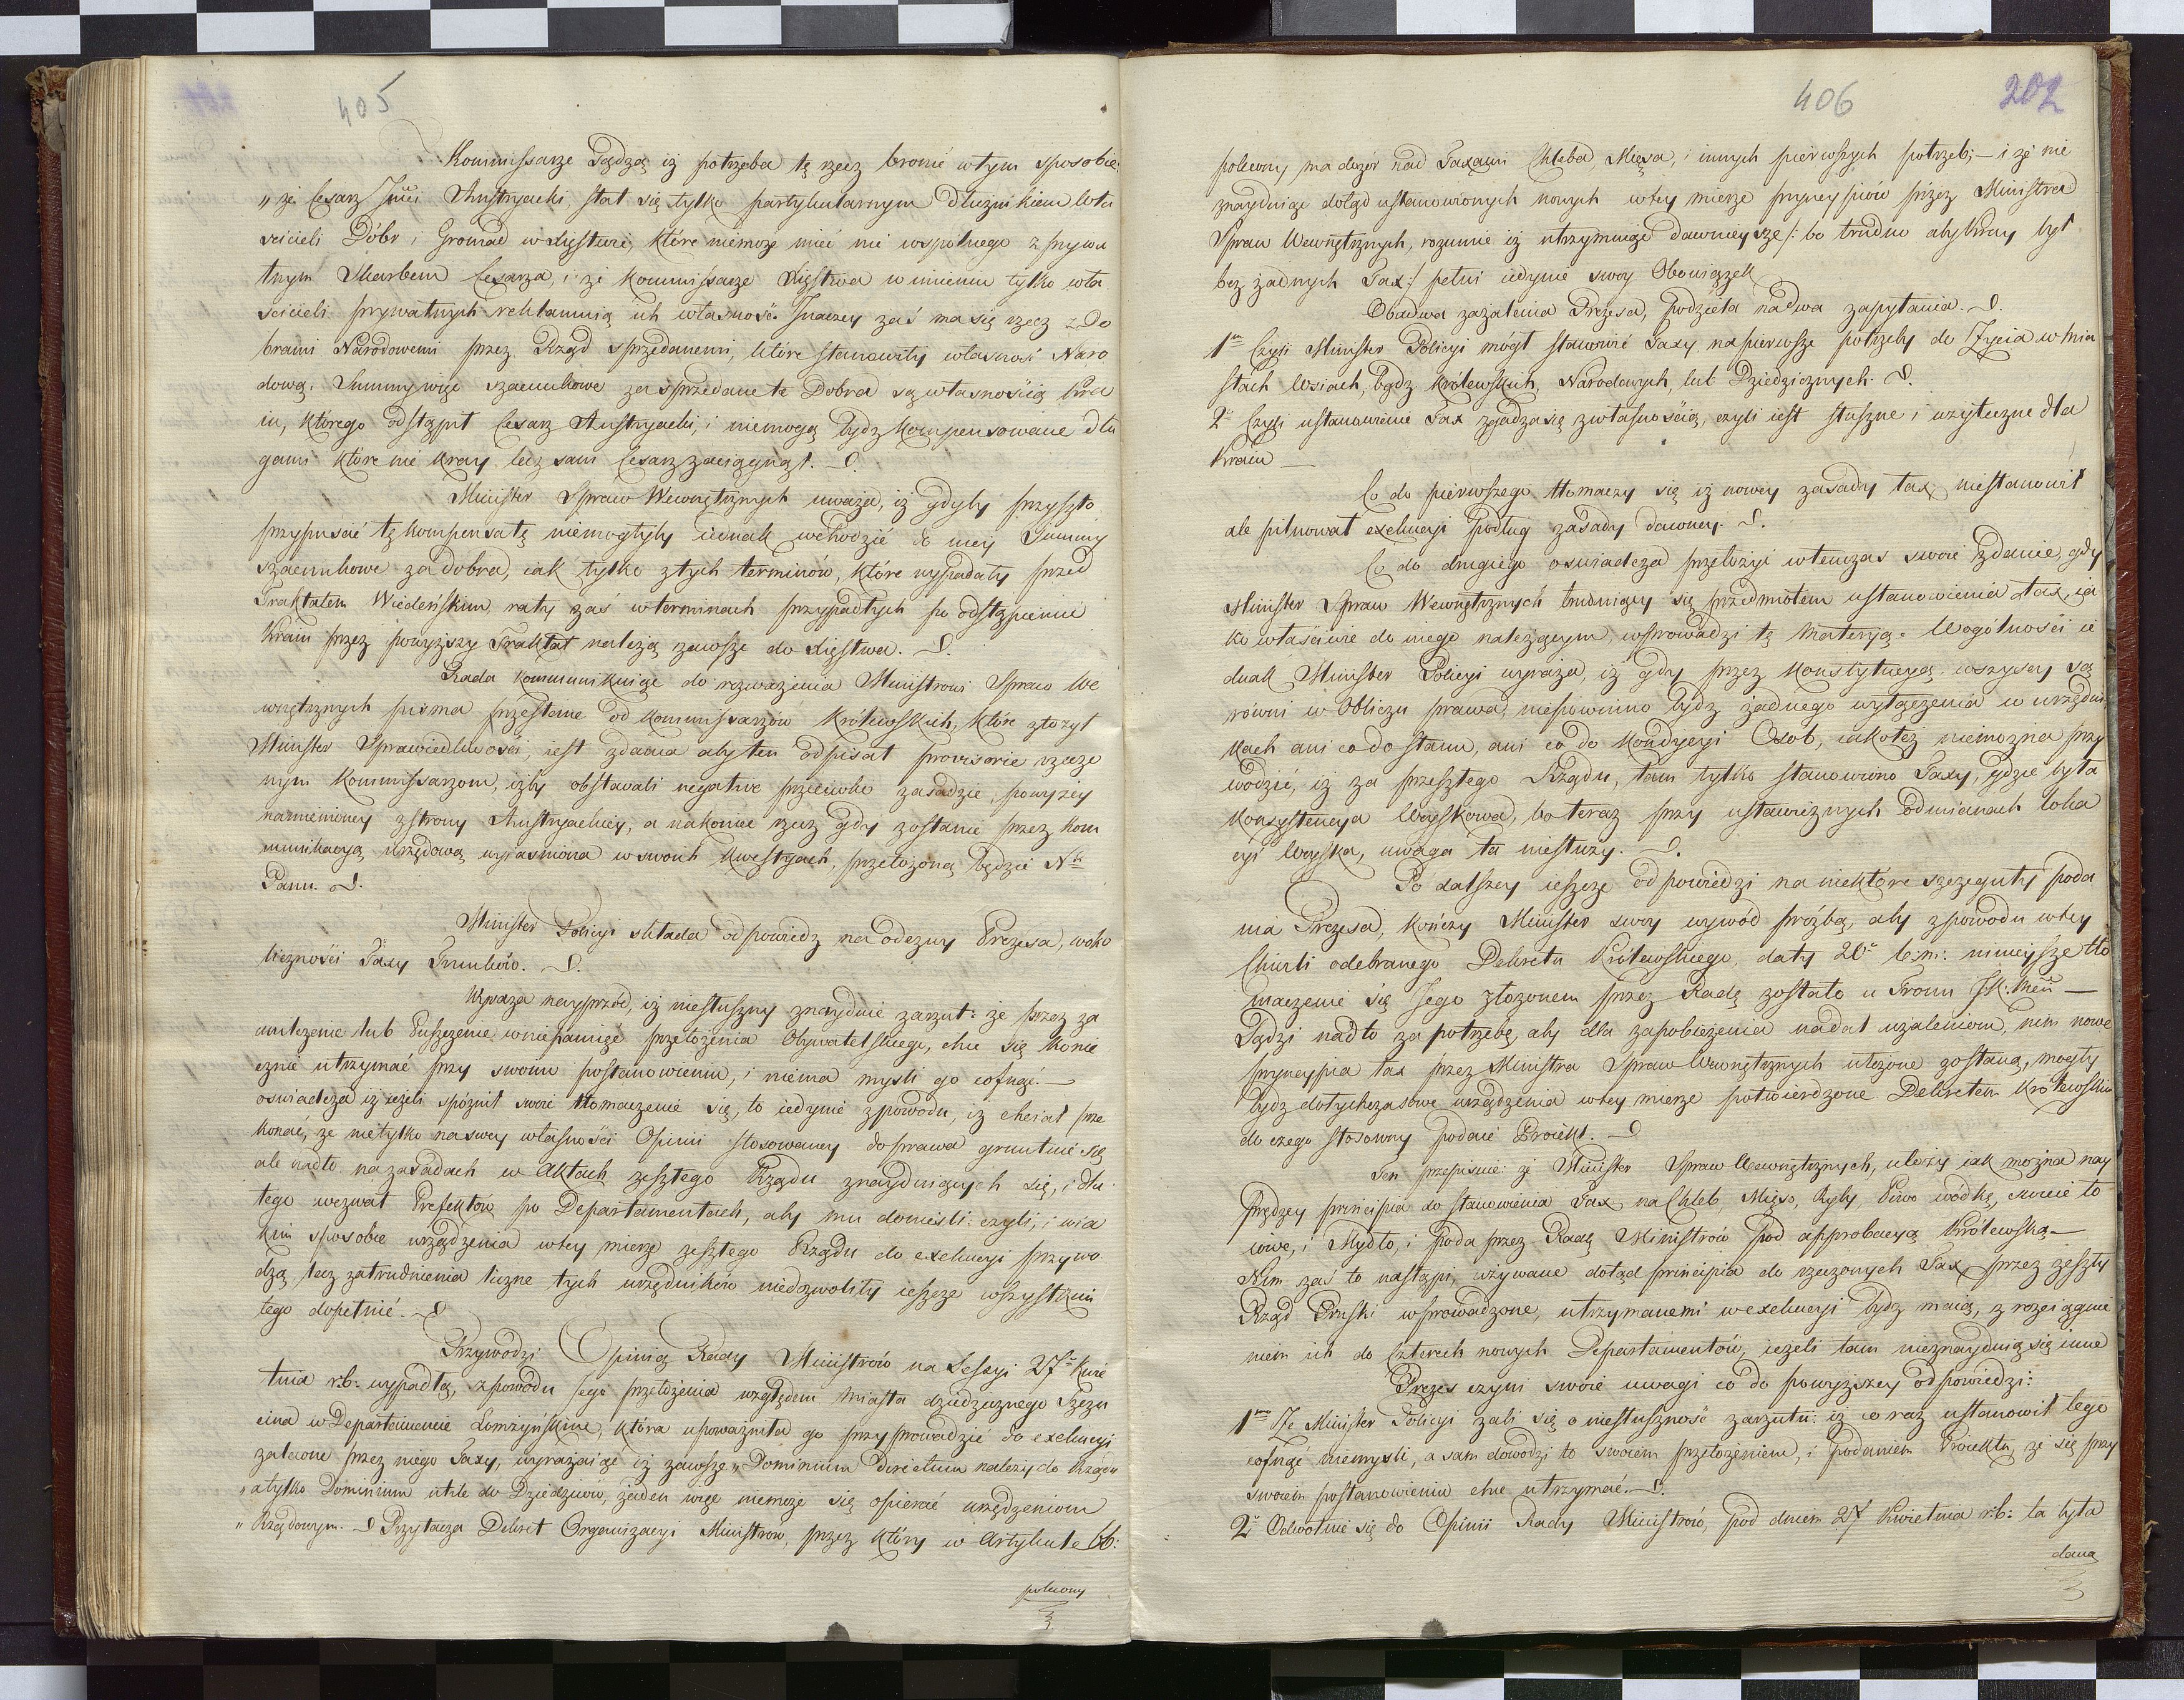 405
Kommissarze Sądzą iż potrzeba tę rzecz bronić w tym sposobie:
„ że Cesarz Jmci Austryacki, stał się tylko partykularnym Dłużnikiem wła
ścicieli Dóbr i Gromad w Xięstwie, które niemoże mieć nic wspólnego z prywa
tnym Skarbem Cesarza, i że Kommissarze Xięstwa w imieniu tylko wła
ścicieli prywatnych reklamuią ich własność. Inaczey zaś ma się rzecz z Do
brami Narodowemi przez Rząd sprzedanemi, które stanowiły własność Naro
dową. Summy więc szacunkowe za sprzedane te Dobra są własnością kra
iu, którego odstąpił Cesarz Austryacki, i niemogą bydz kompensowane dłu
gami które nie kray lecz sam Cesarz zaciągnął.
Minister Spraw Wewnętrznych uważa, iż gdyby przyszło
przypuścić tę kompensatę niemogłyby iednak wchodzić do niey Summy
szacunkowe za dobra, iak tylko z tych terminów, które wypadały przed
Traktatem Wiedeńskim, raty zaś w terminach przypadłych po odstąpieniu
Kraiu przez powyższy Traktat należą zawsze do Xięstwa.
Rada kommunikuiąc do rozważenia Ministrowi Spraw We
wnętrznych pisma przesłane od Kommissarzów Królewskich, które złożył
Minister Sprawiedliwości, iest zdania aby ten odpisał provisorie rzeczo
nym Kommissarzom, iżby obstawali negative przeciwko zasadzie, powyżey
namienioney z strony Austryackiey, a nakoniec rzecz gdy zostanie przez kom
munikacyą urzędową wyiaśniona w swoich kwestyach, przełożoną będzie Nu
Panu.
Minister Policyi składa odpowiedz na odezwy Prezesa, w oko
liczności Taxy Trunków.
Wyraża nayprzód, iż niesłuszny znayduie zarzut: że przez za
milczenie lub Puszczenie w niepamięć przełożenia Obywatelskiego, chce się konie
cznie utrzymać przy swoim postanowieniu, i niema myśli go cofnąć. —
oświadcza iż ieżeli spóźnił swoie tłomaczenie się, to iedynie z powodu, iż chciał prze
konać, że nie tylko na swey własności Opinii stosowaney do prawa gruntuie się
ale nadto na zasadach w Aktach zeszłego Rządu znayduiących się, i dla
tego wezwał Prefektów po Departamentach, aby mu donieśli: czyli, i w ia
kim sposobie urządzenia w tey mierze zeszłego Rządu do exekucyi przywo
dzą, lecz zatrudnienia liczne tych urzędników niedozwoliły ieszcze wszystkim
tego dopełnić.
Przywodzi Opinią Rady Ministrów na Sessyi 27a Kwie
tnia r: b: wypadłą, z powodu Jego przełożenia względem Miasta dziedzicznego Szczu
cina w Departamencie Łomżyńskim, która upoważniła go przyprowadzić do exekucyi
zalecone przez niego Taxy, wyrażaiąc iż zawsze „Dominium directum należy do Rządu
„ a tylko Dominium utile do Dziedziców, żaden więc niemoże się opierać urządzeniom
„ Rządowym. Przytacza Dekret Organizacyi Ministrów, przez który w Artykule 66:
polecony
406
202
polecony ma dozór nad Taxami Chleba, Mięsa, i innych pierwszych potrzeb; — i że nie
znayduiąc dotąd ustanowionych nowych w tey mierze pryncypiów przez Ministra
Spraw Wewnętrznych, rozumie iż utrzymuiąc dawnieysze /: bo trudno aby kray był
bez żadnych Tax :/ pełni iedynie swoy Obowiązek
Obadwa zażalenia Prezesa, Podziela na dwa zapytania.
1mo Czyli Minister Policyi mógł stanowić Taxy na pierwsze potrzeby do Życia w Mia
stach Wsiach, bądz królewskich, Narodowych, lub Dziedzicznych.
2o Czyli ustanowienie Tax zgadza się z własnością, czyli iest słuszne i użyteczne dla
kraiu —
Co do pierwszego tłomaczy się iż nowey zasady tax niestanowił
ale pilnował exekucyi podług zasady dawney.
Co do drugiego oświadcza przełożyć wtenczas swoie zdanie, gdy
Minister Spraw Wewnętrznych trudniący się przedmiotem ustanowienia tax, ia
ko właściwie do niego należącym, wprowadzi tę Materyą. W ogólności ie
dnak Minister Policyi wyraża, iż gdy przez konstytucyą wszyscy są
równi w obliczu prawa, niepowinno bydz żadnego wyłączenia w urządze
kach ani co do stanu, ani co do kondycyi Osob, iako też niemożna przy
wodzić, iż za przeszłego Rządu, tam tylko stanowiono Taxy, gdzie była
Konsystencya Woyskowa, bo teraz przy ustawicznych odmianach loka
cyi Woyska, uwaga ta niesłuży.
Po dalszey ieszcze odpowiedzi na niektóre szczeguły poda
nia Prezesa, kończy Minister swoy wywód prożbą, aby z powodu w tey
Chwili odebranego Dekretu Królewskiego daty 20o b: m: ninieysze tło
maczenie się Jego złożonem przez Radę zostało u Tronu JK: Mci —
Sądzi nadto za potrzebę, aby dla zapobieżenia nadal użaleniom, nim nowe
pryncypia tax przez Ministra Spraw Wewnętrznych ułożone zostaną, mogły
bydz dotychczasowe urządzenia w tey mierze potwierdzone Dekretem Królewskim
do czego stosowny podaie Proiekt.
Ten przepisuie: że Minister Spraw Wewnętrznych, ułoży iak można nay
prędzey principia do stanowienia Tax na Chleb, Mięso, Ryby, Piwo wódkę, świece ło
iowe, i Mydło, i poda przez Radę Ministrów pod approbacyą królewską —
Nim zaś to nastąpi, używane dotąd principia do rzeczonych Tax, przez zeszły
Rząd Pruski wprowadzone, utrzymanemi w exekucyi bydz maią, z rozciągnie
niem ich do Czterech nowych Departamentów, ieżeli tam nieznayduią się inne
Prezes czyni swoie uwagi co do powyższey odpowiedzi:
1mo Że Minister Policyi żali się o niesłuszność zarzutu: iż co raz ustanowił tego
cofnąć niemyśli, a sam dowodzi to swoiem przełożeniem, i podaniem Proiektu, że się przy
swoiem postanowieniu chce utrzymać.
2o Odwołuie się do Opinii Rady Ministrów, pod dniem 27 Kwietnia r: b: ta była
dana